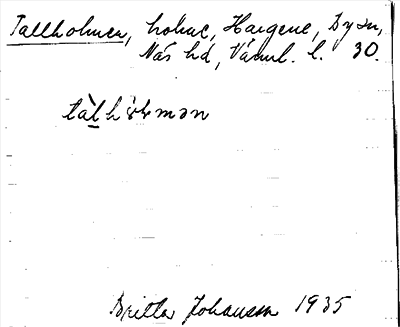 Tallholmen, holme, Hargene, By sn,
Näs hd, Värml. l. 30.
tàlhɷɷmən
Britta Johansson 1935